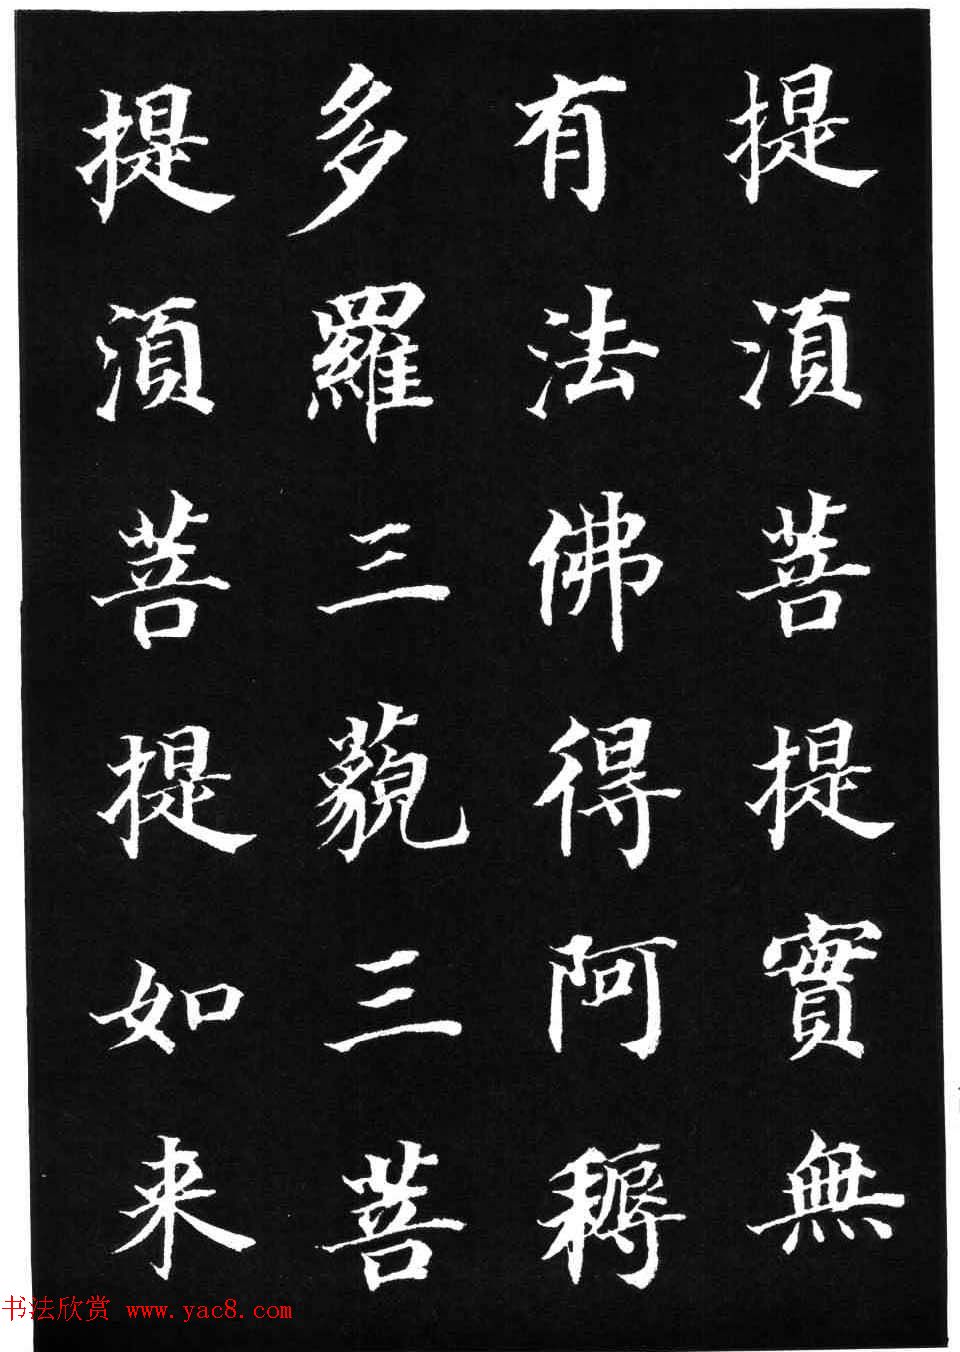 提湏菩提實無
有法佛得阿耨
多羅三藐三菩
提湏菩提如来
书法欣赏 www.yac8.com